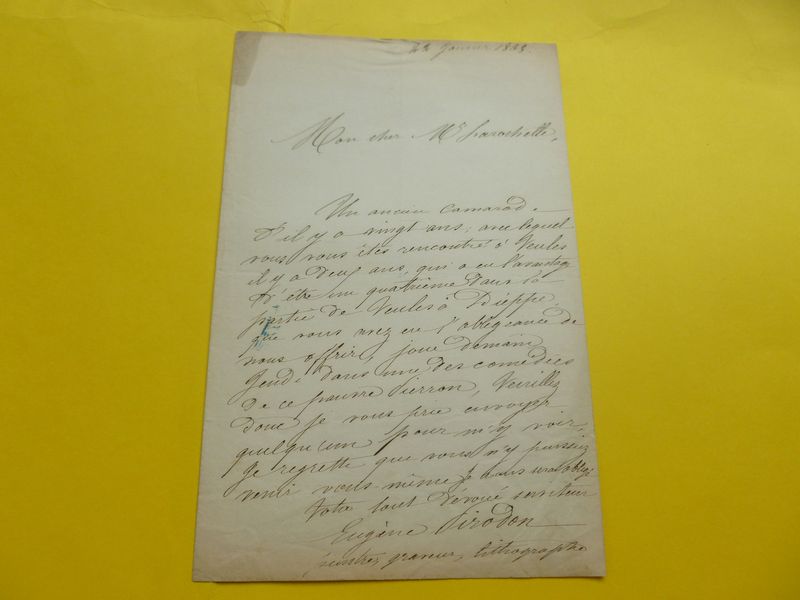 Janvier
Mon cher Mr Larochelle,
Un ancien Camarad.
d'il y a vingt ans, avec lequel
vous vous êtes rencontré à Veules
il y a deux ans, qui a eu l'avantage
d'être un quatrième dans la
partie de Veules à Dieppe
que vous avez eu l'obligeance de
nous offrir, joue demain
Jeudi dans une des comédies
de ce pauvre Pierron, Veuillez
donc je vous prie envoyer
quelqu'un pour m'y voir.
Je regrette que vous n'y puissiez
venir vous même je vous serai obligé
Votre tout dévoué serviteur
Eugène Pirodon
peintre, graveur, lithographe